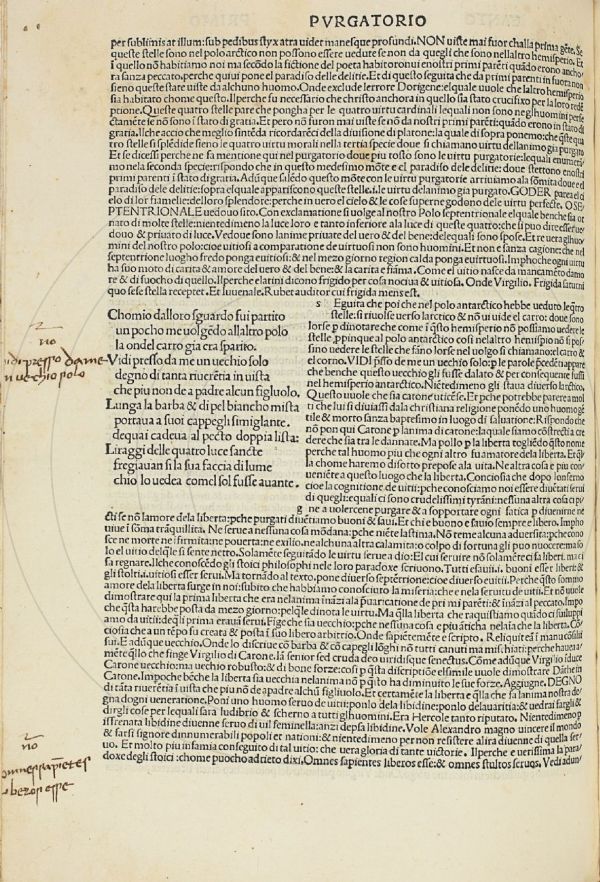 PVRGATORIO
per sublimis at illum: sub pedibus styx atra uidet manesque profundi. NON uiste mai fuor challa prima gēte. Se
queste stelle sono nel polo arctico non possono essere uedute se non da quegli che sono nellaltro hemisperio. Et
quello nō habitiamo noi ma secōdo la fictione del poeta habitoronui enostri primi parēti quādo erono anchora
sanza peccato. perche quiui pone el paradiso delle delitie. Et di questo seguita che da primi parenti in fuora non
sieno queste state uiste da alchuno huomo. Onde exclude lerrore Dorigene: elquale uuole che laltro hemisperio
sia habitato chome questo. Ilperche fu necessario che christo anchora in quello sia stato crucifixo per la loro
ptione. Queste quatro stelle pare che pongha per le quatro uirtu cardinali lequali non sono ne glhuomini
ctamēte se nō sono ī stato di gratia. Et pero nō furon mai uiste se nō da nostri primi parēti: quādo erono in stato di
gratia. Ilche accio che meglio sintēda ricordarēci della diuisione di platone: la quale di sopra ponemo: che
tro stelle si splēdide sieno le quatro uirtu morali nella tertia specie doue si chiamano uirtu dellanimo gia purgato
Et se dicessi perche ne fa mentione qui nel purgatorio doue piu tosto sono le uirtu purgatorie: lequali
mo nela seconda specie: rispondo che in questo medesimo mōte e el paradiso dele delitie: doue stettono enostri
primi parenti ī stato di gratia. Adūque salēdo questo mōte con le uirtu purgatorie arriuiamo ala sōmita doue el
paradiso dele delitie: sopra elquale appariscono queste stelle. i. le uirtu delanimo gia purgato. GODER parea el ci
elo di lor fiamelle: dello loro splendore: perche in uero el cielo & le cose superne godono dele uirtu perfecte. O SE
PTENTRIONALE uedouo sito. Con exclamatione si uolge al nostro Polo septentrionale elquale benche sia or
nato di molte stelle: nientedimeno la luce loro e tanto inferiore a la luce di queste quatro: che si puo dire esser
douo & priuato di luce. Vedoue sono lanime priuate del uero & del bene: delequali sono spose. Et ne uera glhuo
mini del nostro polo: cioe uitiosi a comparatione de uirtuosi non sono huomini. Et non e sanza cagione: che nel
septentrione luogho fredo ponga euitiosi: & nel mezo giorno region calda ponga euirtuosi. Imphoche ogni uirtu
ha suo moto di carita & amore del uero & del bene: & la carita e fiāma. Come el uitio nasce da mancamēto damo
re & di fuocho di quello. Ilperche elatini dicono frigido per cosa nociua & uitiosa. Onde Virgilio. Frigida saturni
quo sese stella receptet. Et Iuuenale. Rubet auditor cui frigida mens est.
Chomio dalloro sguardo fui partito
un pocho me uolgēdo allaltro polo
la ondel carro gia era sparito.
Vidi presso da me un uechio solo
degno di tanta riuerētia in uista
che piu non de a padre alcun figluolo.
Lunga la barba & di pel biancho mista
portaua a suoi cappegli simiglante.
dequai cadeua al pecto doppia lista:
Li raggi delle quatro luce sancte
fregiauan si la sua faccia di lume
chio lo uedea comel sol fusse auante.
s Eguita che poi che nel polo antarctico hebbe ueduto leqtro
stelle. si riuolse uerso larctico & nō ui uide el carro: doue sono
lorse p dinotare che come ī q̄sto hemisperio nō possiamo uedere le
stelle. ppinque al polo antarctico cosi nel altro hemisperio nō si pos
sino uedere le stelle che fāno lorse nel uolgo si chiamano el carro &
el corno. VIDI p̄sso de me un uechio solo: & p le parole seq̄nti apparre
che benche questo uechio gli fusse dallato & per consequente
nel hemisperio antarctico. Niētedimeno gli staua diuerso larctico.
Questo uuole che sia catone uticēse. Et pche potrebbe parere a mol
ti che lui si diuiassi dala christiana religione ponēdo uno huomo
tile & morto sanza baptesimo in luogo di saluatione. Rispondo che
nō pon qui Catone p lanima di catone: laquale siamo cōstrecti a cre
dere che sia tra le dannate. Ma pollo p la libertà togliēdo q̄sto nome
perche tal huomo piu che ogni altro fu amatore della liberta. Et
la chome haremo di sotto prepose ala uita. Ne altra cosa e piu con
ueniēre a questo luogo che la liberta. Conciosia che dopo lonferno
cioe la cognitione de uitii: pche conosciamo noi essere diuētati serui
di quegli: equali ci sono crudelissimi tyrāni: nessuna altra cosa ci
g ne a uolercene purgare & a sopportare ogni fatica p diuenirne ne
cti se nō lamore dela liberta: pche purgati diuētiamo buoni & saui. Et chi e buono e sauio sempre e libero. Impho
uiue ī sōma trāquillita. Ne serue a nessuna cosa mōdana: pche niēte lastima. Nō teme alcuna aduersita: pche cono
sce ne morte ne ī firmita: ne pouerta: ne exilio. ne alchuna altra calamita: o colpo di fortuna gli puo nuocere: ma so
lo el uitio delq̄le si sente netto. Solamēte seguitādo le uirtu serue a dio: El cui seruire nō solamēte ci fa liberi. ma ci
fa regnare. Ilche conoscēdo gli stoici philosophi nele loro paradoxe scriuono. Tutti esaui. i. buoni esser liberi: &
gli stolti. i. uitiosi esser serui. Ma tornādo al testo. pone diuerso septētrione: cioe diuerso euitii. Perche q̄sto sommo
amore dela liberta surge in noi: subito che habbiamo conosciuto la miseria: che e nela seruitu de uitii. Et nō uuole
dimostrare qui la prima liberta che era nelanima īnāzi ala p̄uaricatione de pri mi parēti: & īnāzi al peccato. Imp̄o
che q̄sta harebbe posta da mezo giorno: pelq̄le dinota le uirtu. Ma q̄lla liberta che raquistiamo quādo ci
amo da uitii: deq̄li prima eraua serui. Fige che sia uechio: pche nessuna cosa e piu āticha nelaīa che la liberta. Cō
ciosia che a un tēpo fu creata & posta ī suo libero arbitrio. Onde sapiētemēte e scripto. Reliquit eī ī manu cōsilii
sui. E adūque uechio. Onde lo discriue cō barba & cō capegli lōghi nō tutti canuti ma misti: hati: perche haueua
mēte q̄llo che finge Virgilio di Carone. Ia senior sed cruda deo uiridisque senectus. Come adūque Virgilio īduce
Carone uecchio: ma uechio robusto: & di buone forze: cosi p q̄sta discriptiōe el simile uuole dimostrare Dāthe in
Catone. Impoche bēche la liberta sia uecchia nelanima nō p q̄sto ha diminuito le sue forze. Aggiugne. DEGNO
di tāta riuerētia ī uista che piu nō de a padre alchū figluolo. Et certamēte la liberta e q̄lla che fa lanima nostra
gna dogni ueneratione. Poni uno huomo seruo de uitii: ponlo dela libidine: ponlo delauaritia: & uedrai fargli &
dirgli cose per lequali sara ludibrio & scherno a tutti glhuomini. Era Hercole tanto riputato. Nientedimeno p
isfrenata libidine diuenne seruo di uil femminella: anzi depsa libidine. Vole Alexandro magno uincere il mondo
& farsi signore dinnumerabili popoli et nationi: & nientedimeno per non resistere alira diuenne di quella ser
uo. Et molto piu infamia conseguito di tal uitio: che uera gloria di tante uictorie. Ilperche e uerissima la para
doxe degli stoici: chome puocho adrieto dixi. Omnes sapientes liberos esse: & omnes stultos seruos. Vedi adun
nō
uidi presso da me
un uechio polo
nō
omnes sapiētes
liberos esse